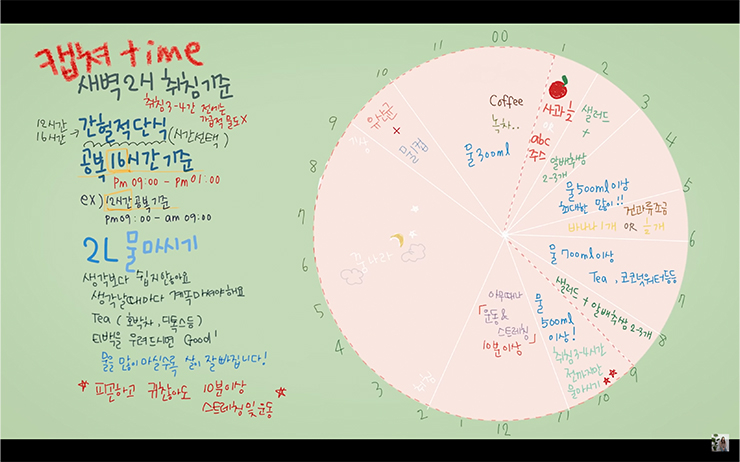 캡쳐 time
새벽 2시 취침기준
취침 3-4시간 전에는
가급적 물도 X
12시간
16시간 → 간헐적단식 (시간선택)
공복 16시간 기준
Pm 09:00 - pm 01:00
ex) 12시간 공복기준
pm 09:00 - am 09:00
2L 물 마시기
생각보다 쉽지않아요
생각날때마다 계속마셔야해요
Tea ( 호박차, 디톡스등 )
티백을 우려드시면 Good!
물을 많이 마실수록 살이 잘 빠집니다!
피곤하고 귀찮아도 10분이상
스트레칭및운동
00
1
2
3
4
5
6
7
8
9
10
11
12
1
2
3
4
5
6
7
8
9
10
11
사과 ½
OR
abc
주스
샐러드
+
알배추쌈
2-3개
물 500ml 이상
최대한 많이!!
견과류조금
바나나 1개 OR ½개
물 700ml 이상
Tea, 코코넛워터등등
샐러드 + 알배추쌈 2-3개
취침 3-4시간
전까지만
물마시기
물
500ml
이상!
아무때나
「운동&
스트레칭」
10분이상
취침
꿈나라
기상
유산균
+
물 한컵
Coffee
녹차..
물 300ml